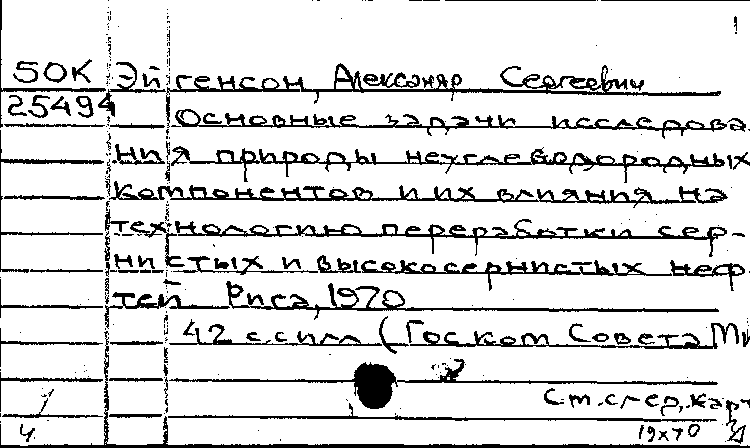 1
50К Эйгенсон, Александр Сергеевич
25494 Основные задачи исследова
ния природы неуглеводородных
компонентов и их влияния на
технологию переработки сер-
нистых и высокосернистых неф
тей. Рига, 1970
42 с.с илл (Госком Совета Ми
Ст.след.карт
4 19x70